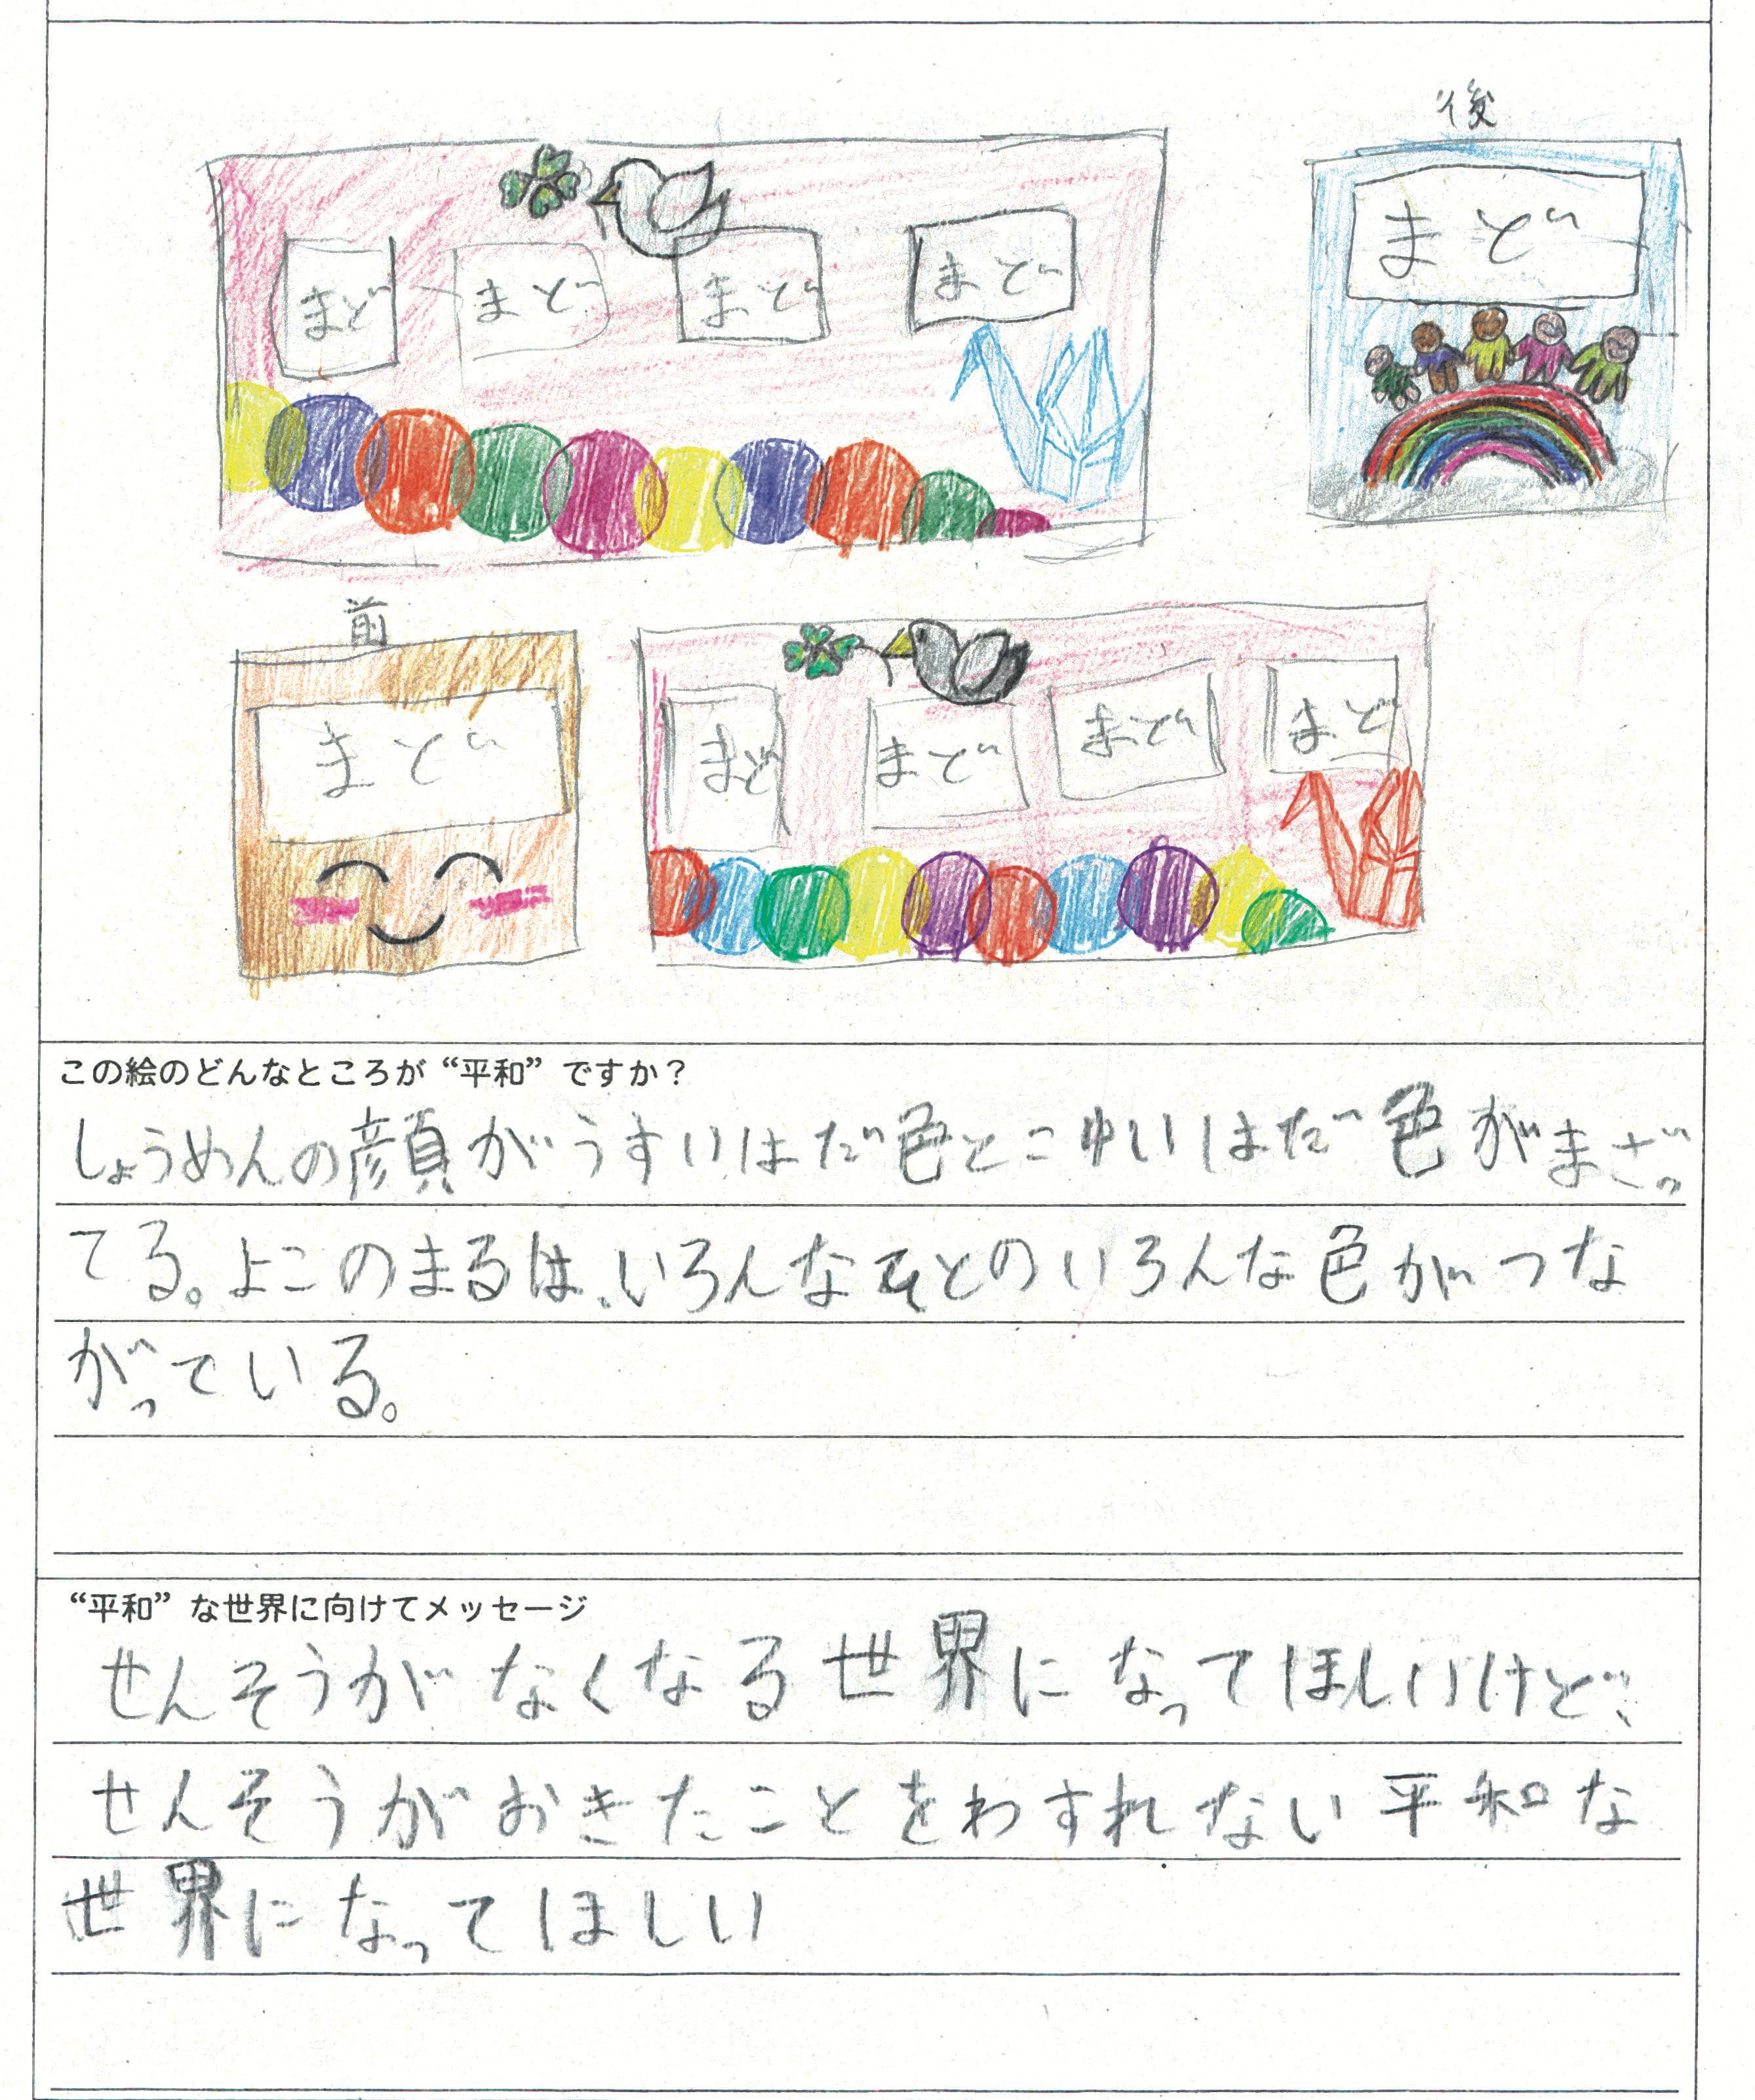 後
まど まど まど まど
まど
前
まど
まど まど まど まど
この絵のどんなところが“平和”ですか？
しょうめんの顔がうすいはだ色とこゆいはだ色がまざっ
てる。よこのまるは、いろんなひとのいろんな色がつな
がっている。
“平和”な世界に向けてメッセージ
せんそうがなくなる世界になってほしいけど、
せんそうがおきたことをわすれない平和な
世界になってほしい